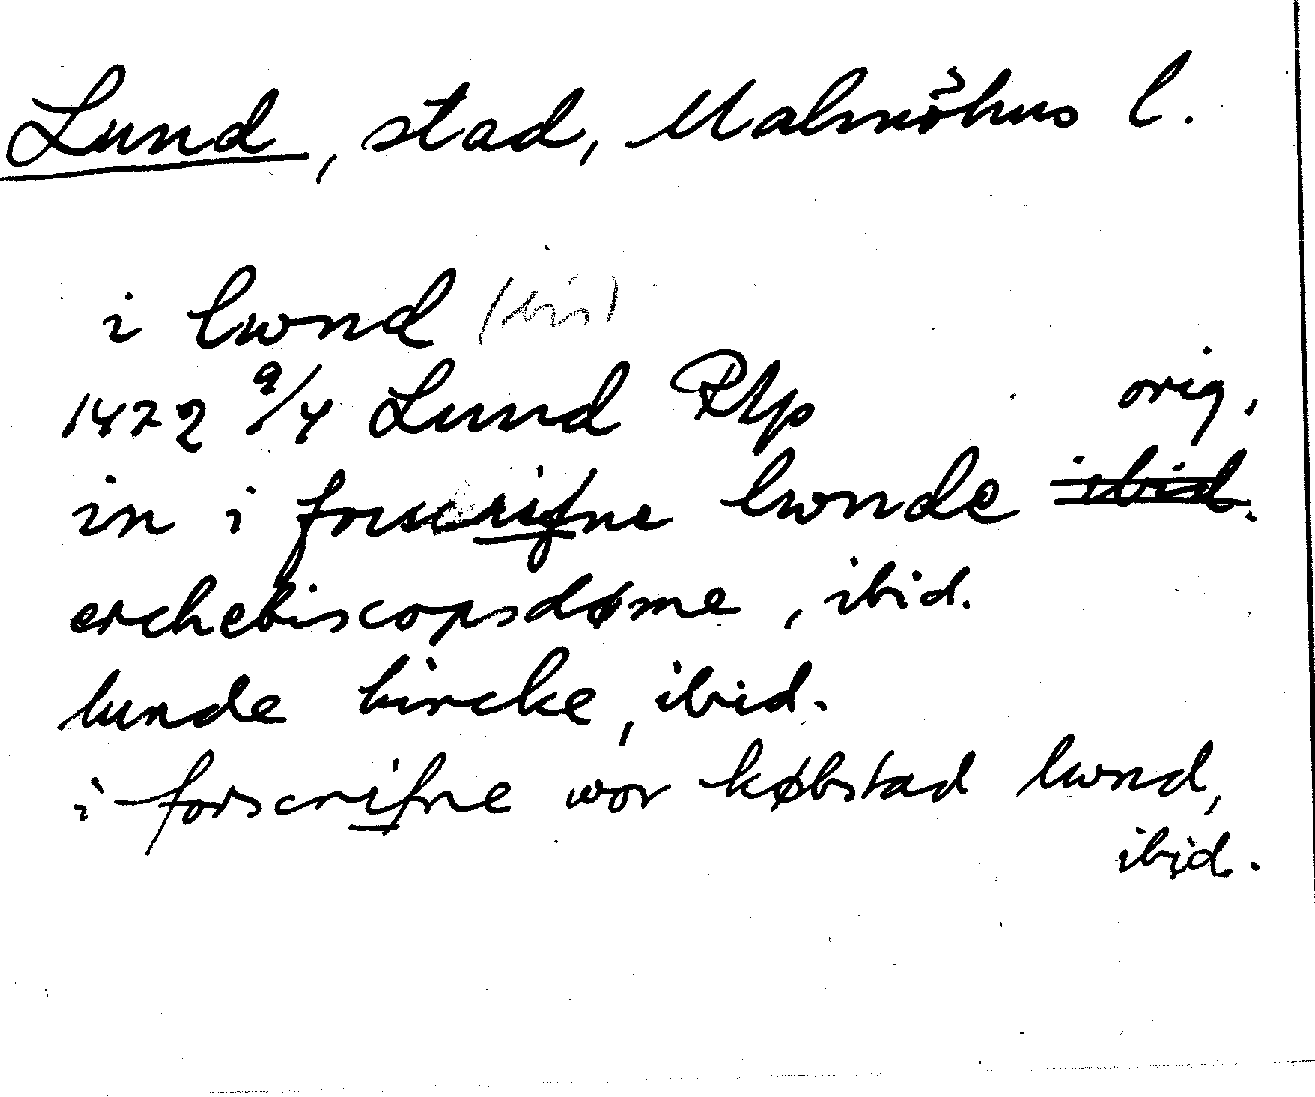 Lund, stad, Malmöhus l.
i lwnd (bis)
1472 9/4 Lund RAp orig.
in i forscrifne lwnde ibid.
erchebiscopsdøme, ibid.
lunde kircke, ibid.
i forscrifne wor købstad lwnd,
ibid.